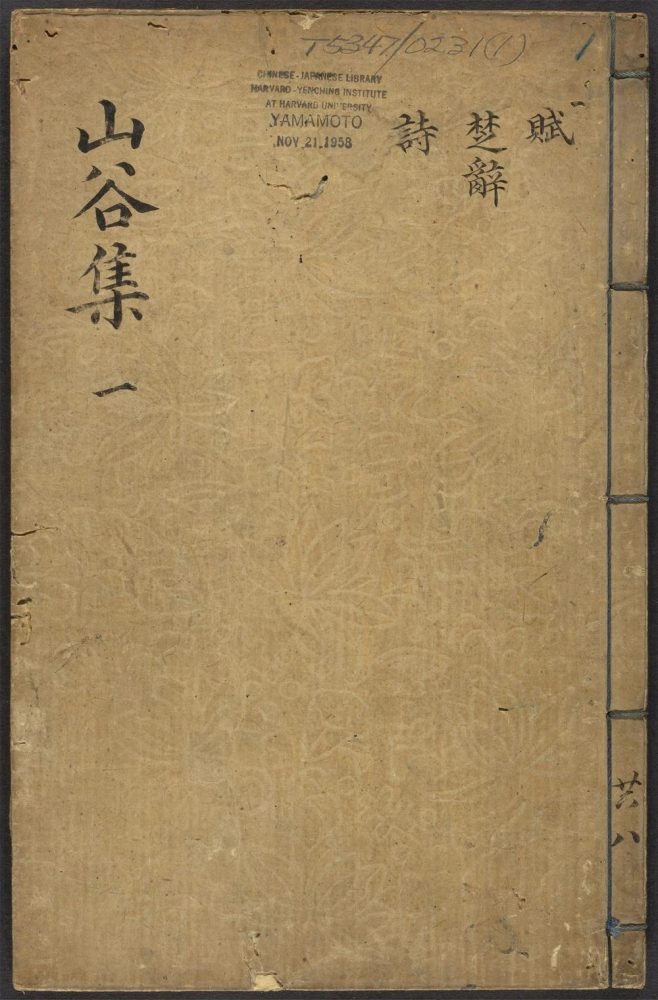 T5347/0231(1)
1
CHINESE-JAPANESE LIBRARY
HARVARD-YENCHING INSTITUTE
AT HARVARD UNIVERSITY
YAMAMOTO
NOV 21 1958
賦
楚辭
詩
山谷集 一
共八